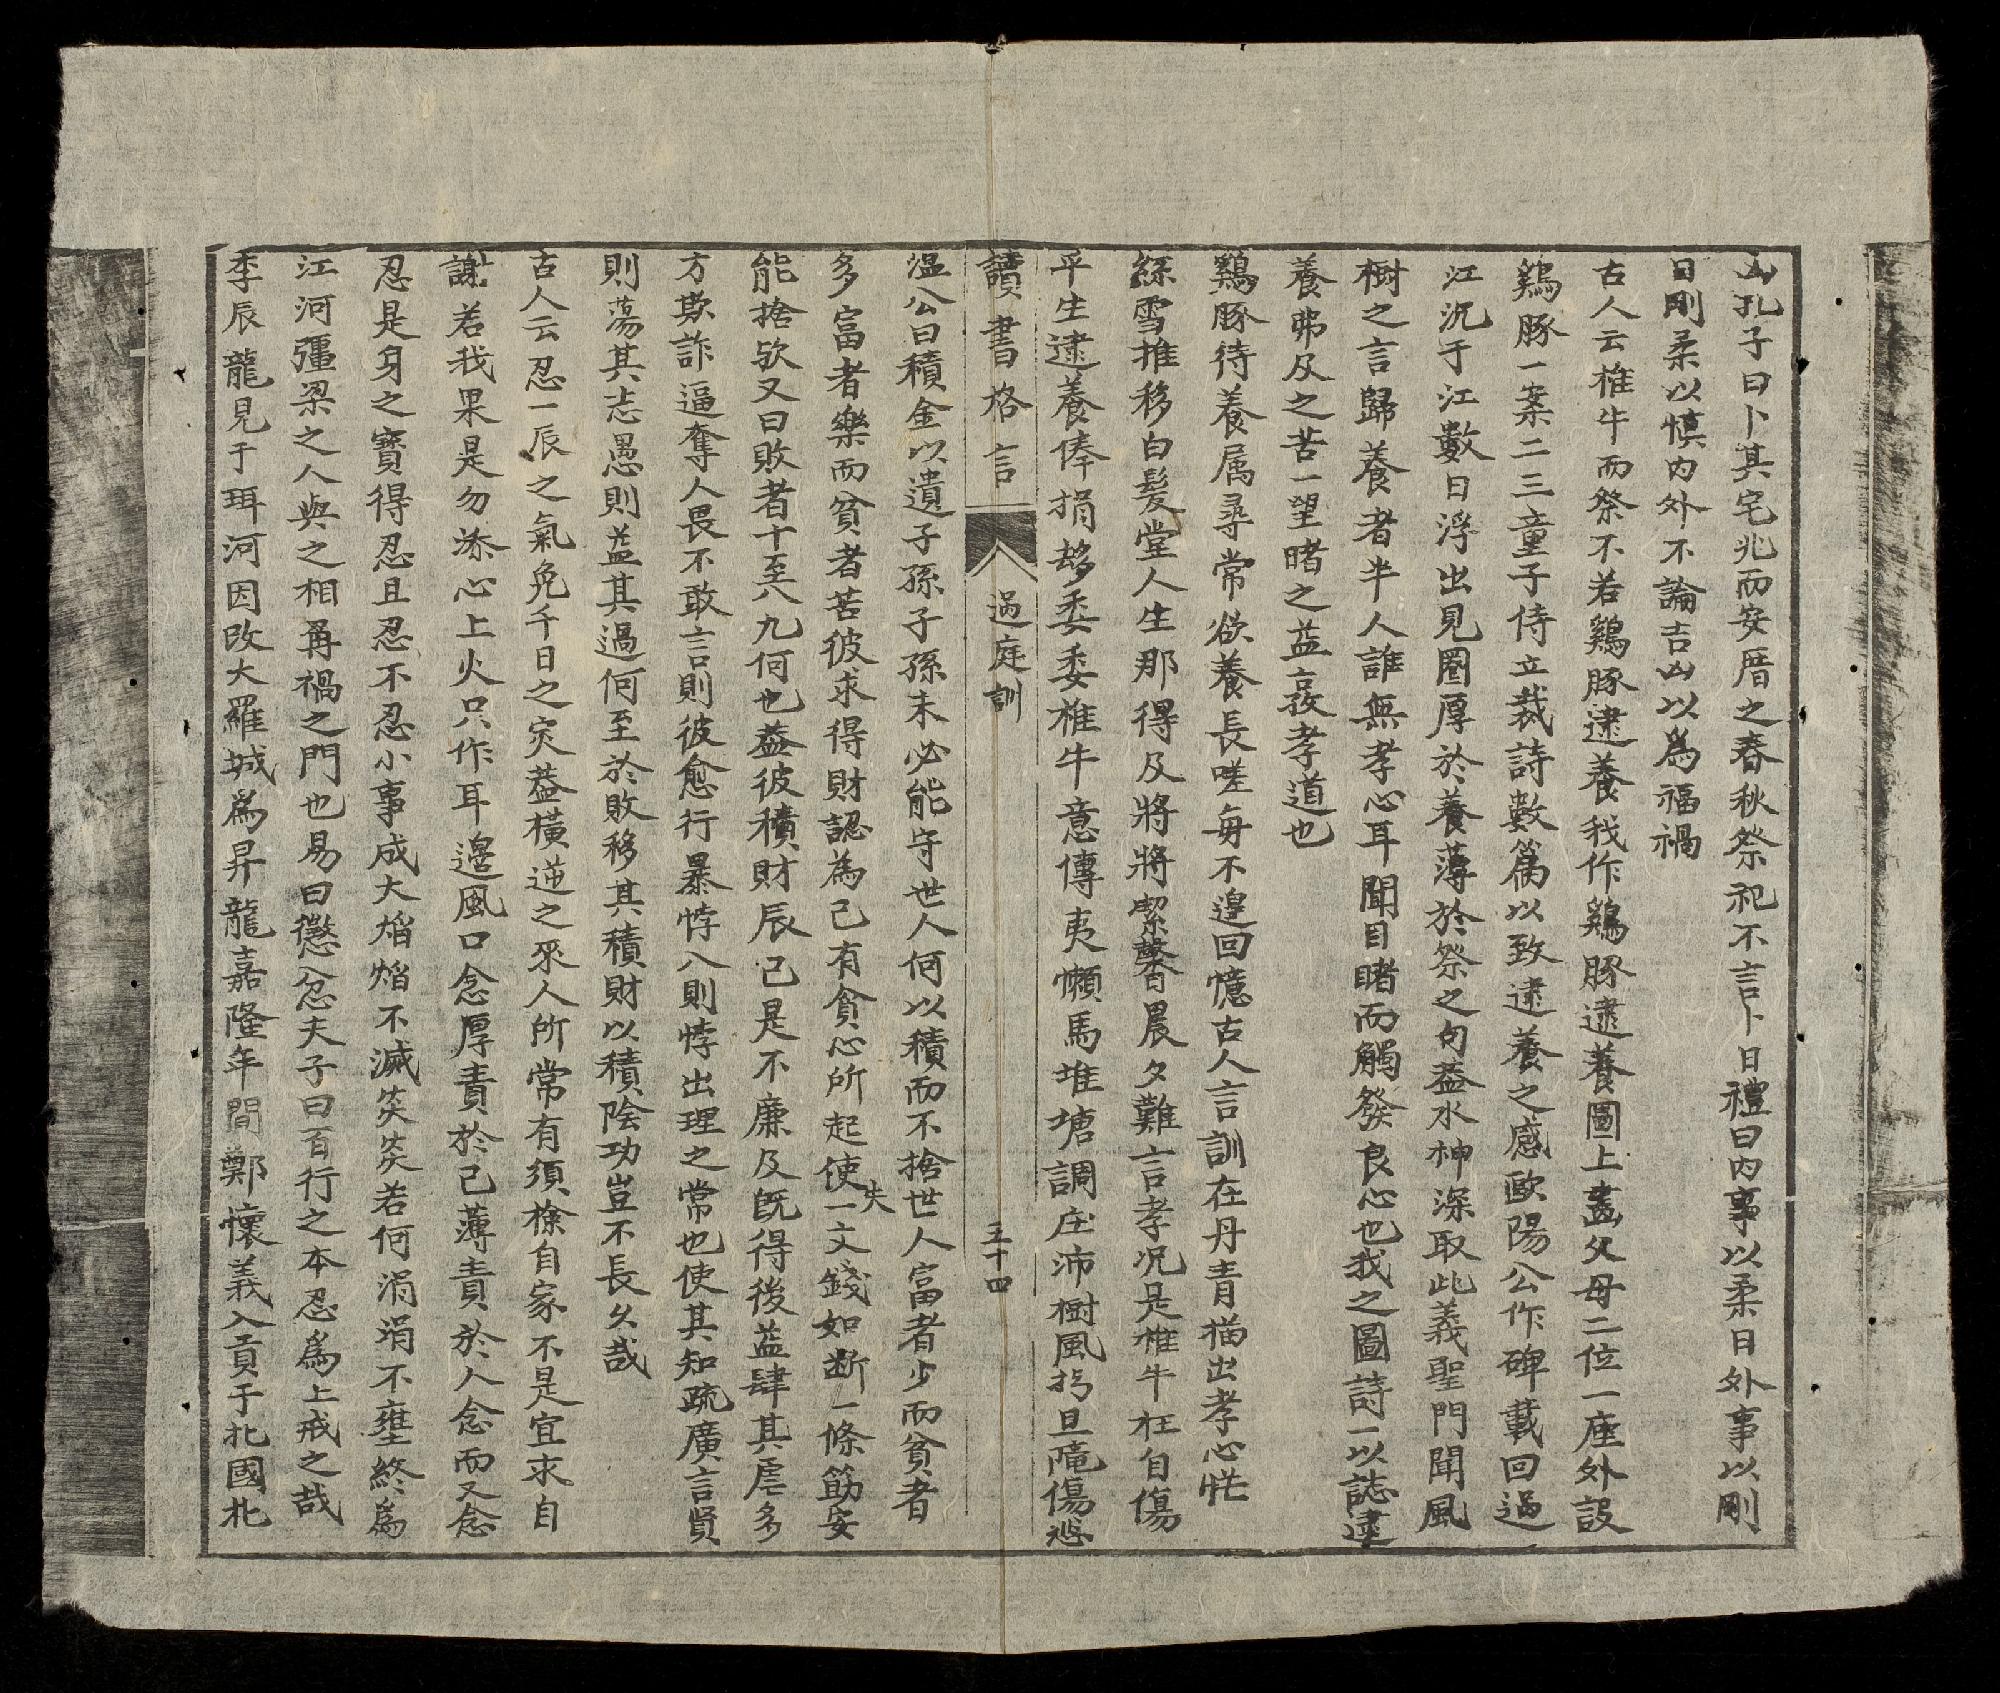 凶孔子曰卜其宅兆而安厝之春秋祭祀不言卜日禮曰內事以柔日外事以剛
日剛柔以慎內外不論吉凶以為福禍
古人云椎牛而祭不若鷄豚逮養我作鷄豚逮養圖上畵父母二位一座外設
鷄豚一案二三童子侍立裁詩數篇以致逮養之感歐陽公作碑載回過
江沉于江數日浮出見圈厚於養薄於祭之句葢水神深取此義聖門聞風
樹之言歸養者半人誰無孝心耳聞目睹而觸發良心也我之圖詩一以誌逮
養弗及之苦一望睹之益敦孝道也
鷄豚待養属尋常欲養長嗟每不遑回憶古人言訓在丹青描出孝心忙
絲雪推移白髪堂人生那得及將將潔馨晨夕難言孝况是椎牛枉自傷
平生逮養俸捐趍委委椎牛意傳夷懶馬堆塘調庄沛樹風拐旦隴傷悲
讀書格言 過庭訓 五十四
温公曰積金以遺子孫子孫未必能守世人何以積而不捨世人富者少而貧者
多富者樂而貧者苦彼求得財認為己有貪心所起使失一文錢如断一條筋安
能捨欤又曰敗者十至八九何也葢彼積財辰已是不廉及旣得後益肆其虐多
方欺詐逼奪人畏不敢言則彼愈行暴悖入則悖出理之常也使其知疏廣言賢
則蕩其志愚則益其過何至於敗移其積財以積陰功豈不長久哉
古人云忍一辰之氣免千日之灾葢橫逆之來人所常有須檢自家不是宜求自
謝若我果是勿添心上火只作耳邊風口念厚責於己薄責於人念而又念
忍是身之寶得忍且忍不忍小事成大焰焰不滅炎炎若何涓涓不壅終為
江河彊梁之人與之相爯禍之門也易曰懲忿夫子曰百行之本忍爲上戒之哉
李辰龍見于珥河因改大羅城爲昇龍嘉隆年間鄭懷義入貢于北國北